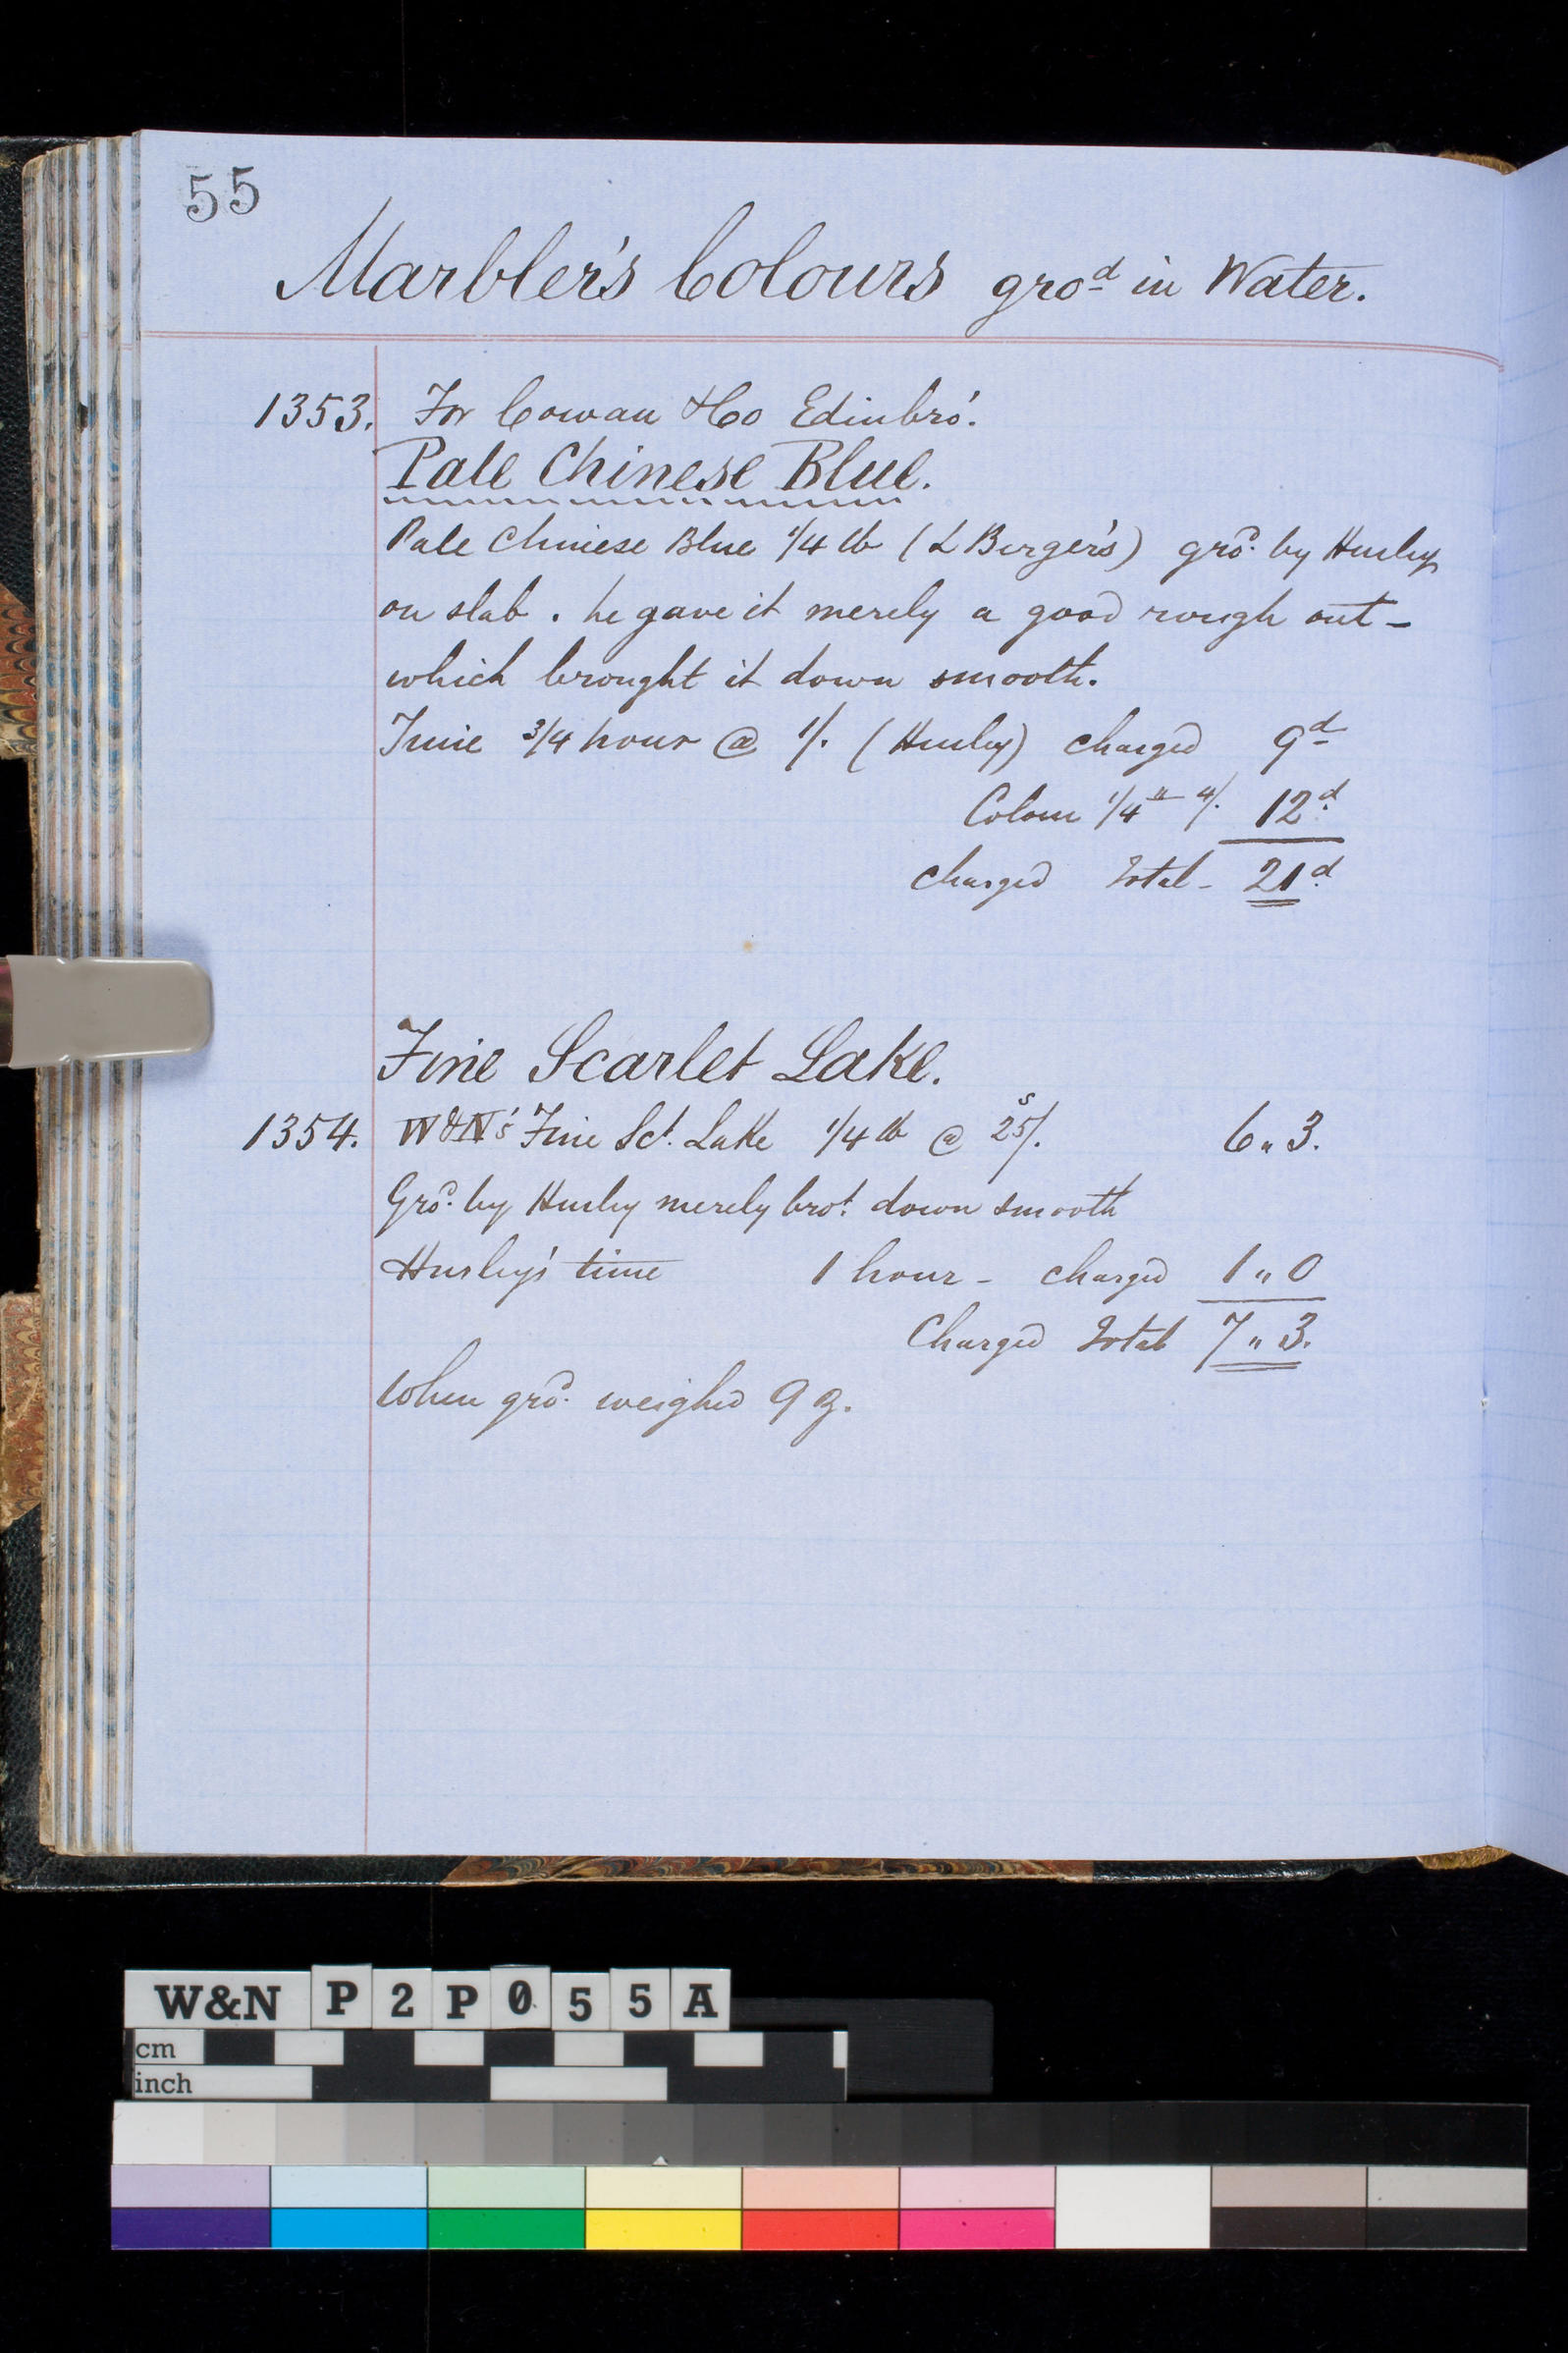 55
Marbler's Colours gro^d in Water.
1353. For Cowan & Co Edinbro'.
Pale Chinese Blue.
Pale Chinese Blue 1/4 lb (L Berger's) gro^d. by Hurley
on slab. he gave it merely a good rough out -
which brought it down smooth.
Time 3/4 hour @ 1/. (Hurley) charged 9^d
Colour 1/4^lb 4/. 12^d
charged Total - 21^d
Fine Scarlet Lake.
1354. W&N's Fine Sct. Lake 1/4 lb @ 25^s/. 6 " 3.
Gro^d. by Hurley merely bro^t. down smooth
Hurley's time 1 hour - charged 1 " 0
Charged Total 7 " 3.
When gro^d. weighed 9 oz.
W&N P2P055A
cm
inch